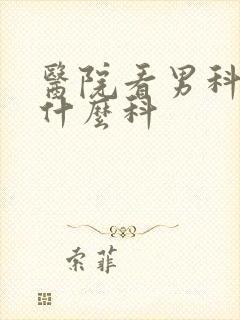 醫院看男科
什麼科
索菲